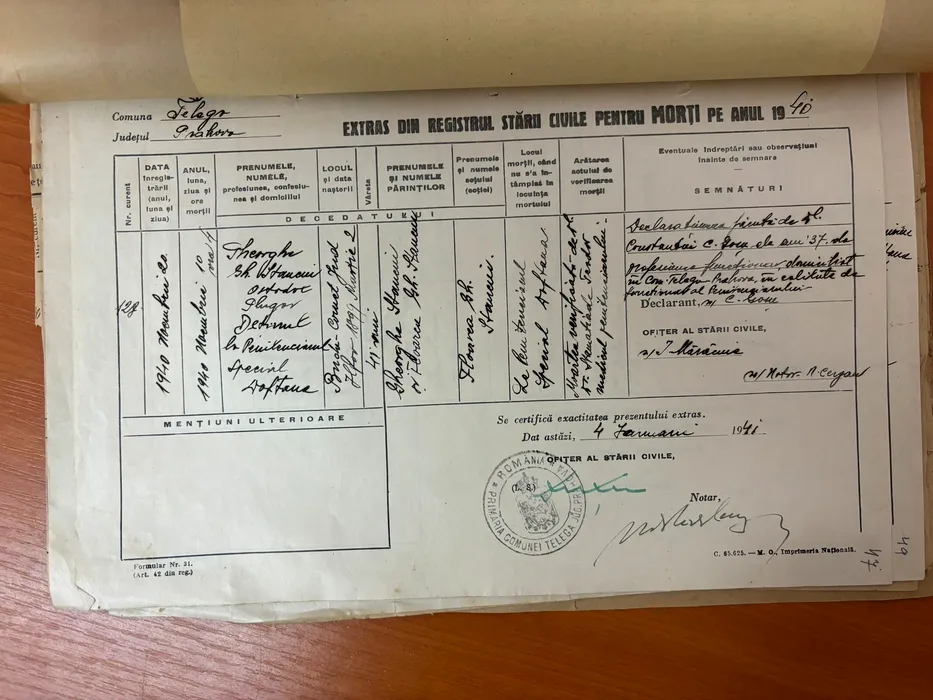 Comuna Telega
Județul Prahova
EXTRAS DIN REGISTRUL STĂRII CIVILE PENTRU MORȚI PE ANUL 1940
Nr. curent
DATA înregistrării (anul, luna și ziua)
ANUL, luna, ziua și ora morții
PRENUMELE, NUMELE, profesiunea, confesiunea și domiciliul
LOCUL și data nașterii
Vârsta
PRENUMELE ȘI NUMELE PĂRINȚILOR
Prenumele și numele soțului (soției)
Locul morții, când nu s'a întâmplat în locuința mortului
Arătarea actului de verificarea morții
Eventuale îndreptări sau observațiuni înainte de semnare
SEMNĂTURI
DECEDATULUI
128
1940 Noembrie 20
1940 Noembrie 10
Gheorghe
Gh. Stanciu
Ortodox
Plugar
Detinut
la Penitenciarul
Special
Doftana
41 ani
Gheorghe Stanciu
și Floarea Gh. Stanciu
Floarea Gh.
Stanciu.
La Penitenciarul
Special Doftana.
Moartea verificată de dl.
medicul penitenciarului
Declarațiunea făcută de dl.
Constantin C. Gom de ani 37 de
profesiune funcționar, domiciliat
în Com. Telega Prahova, în calitate de
funcționar al Penitenciarului
Declarant, ss C. Gom
OFIȚER AL STĂRII CIVILE,
ss I. Mărăcine
ss Notar
MENȚIUNI ULTERIOARE
Se certifică exactitatea prezentului extras.
Dat astăzi, 4 Ianuarie 1941
OFIȚER AL STĂRII CIVILE,
(L. S.)
ROMÂNIA
PRIMĂRIA COMUNEI TELEGA JUD. PRAHOVA
Notar,
Formular Nr. 31.
(Art. 42 din reg.)
C. 65.625. — M. O., Imprimeria Națională.
47
49